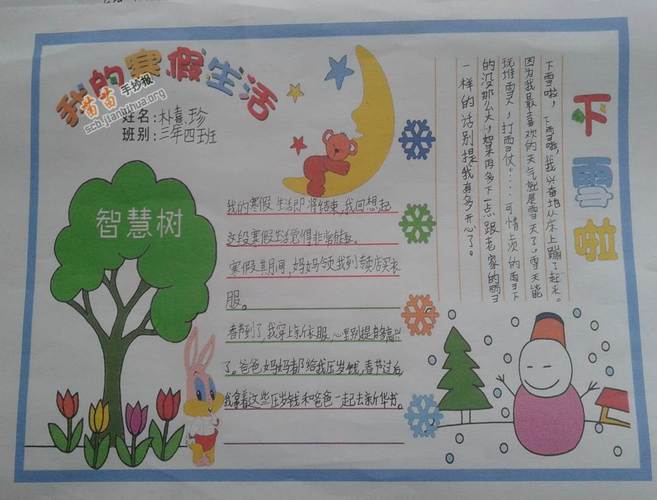 我的寒假生活
苗苗手抄报
scb.jianbihua.org
姓名:朴真珍
班别:三年四班
智慧树
我的寒假生活即将结束,我回想起
这段寒假生活觉得非常
寒假其间,妈妈领我到卖店买衣
服。
春节到了,我穿上新衣服,心里别提
了。爸爸,妈妈都给我压岁钱,春节过后
我拿着这些压岁钱和爸爸一起去新华书。
下雪啦
下雪啦,下雪啦,我兴奋地从床上蹦了起来。
因为我最喜欢的天气就是雪天了。雪天能
玩堆雪人,打雪仗。····可惜上次的雪下
的没那么大,如果再多下一点跟老家的
一样的话别提我有多开心了。